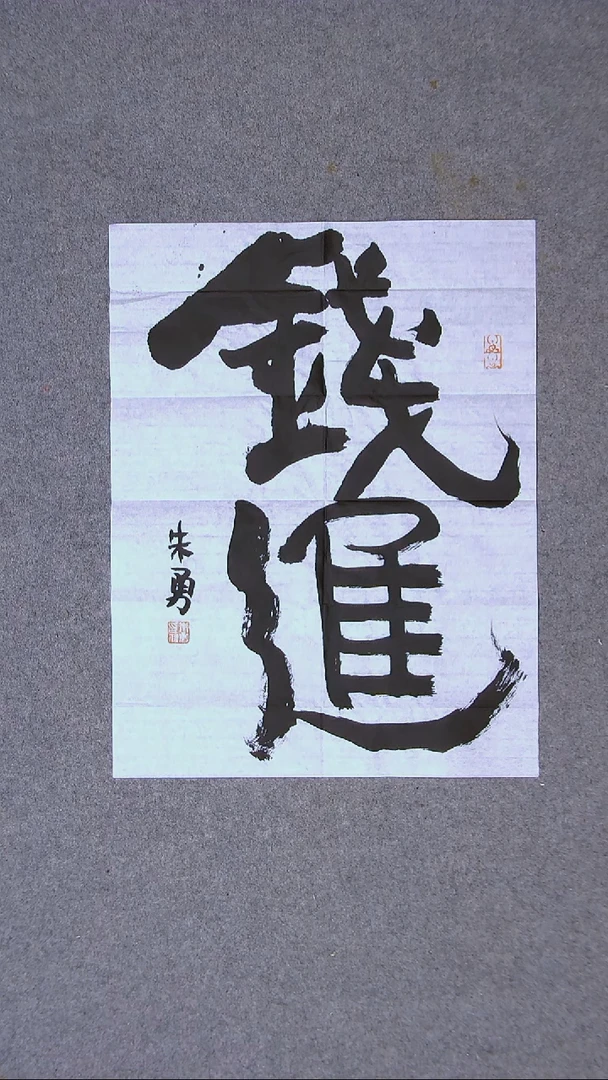 錢進
朱勇